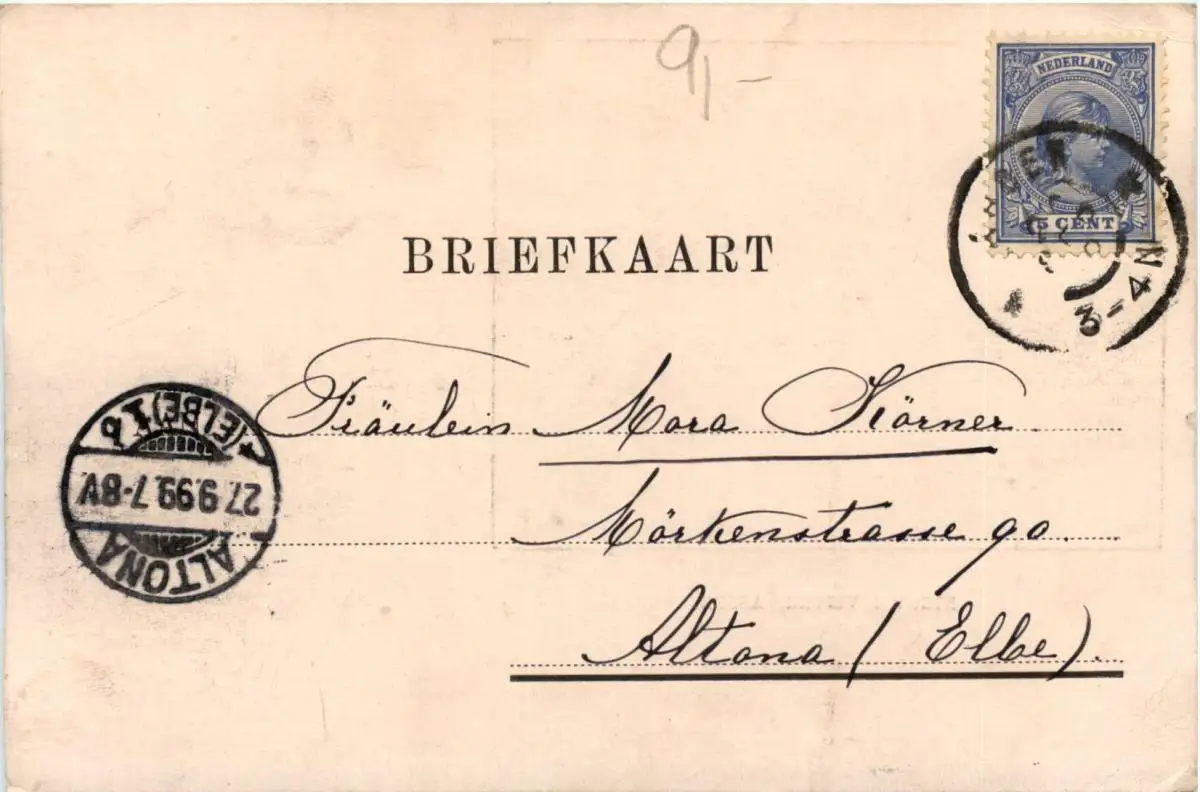 9,-
NEDERLAND
5 CENT
3-4N
BRIEFKAART
Fräulein Mora Körner.
Mörkenstrasse 90.
Altona (Elbe).
ALTONA
27.9.99.7-8V.
(ELBE)